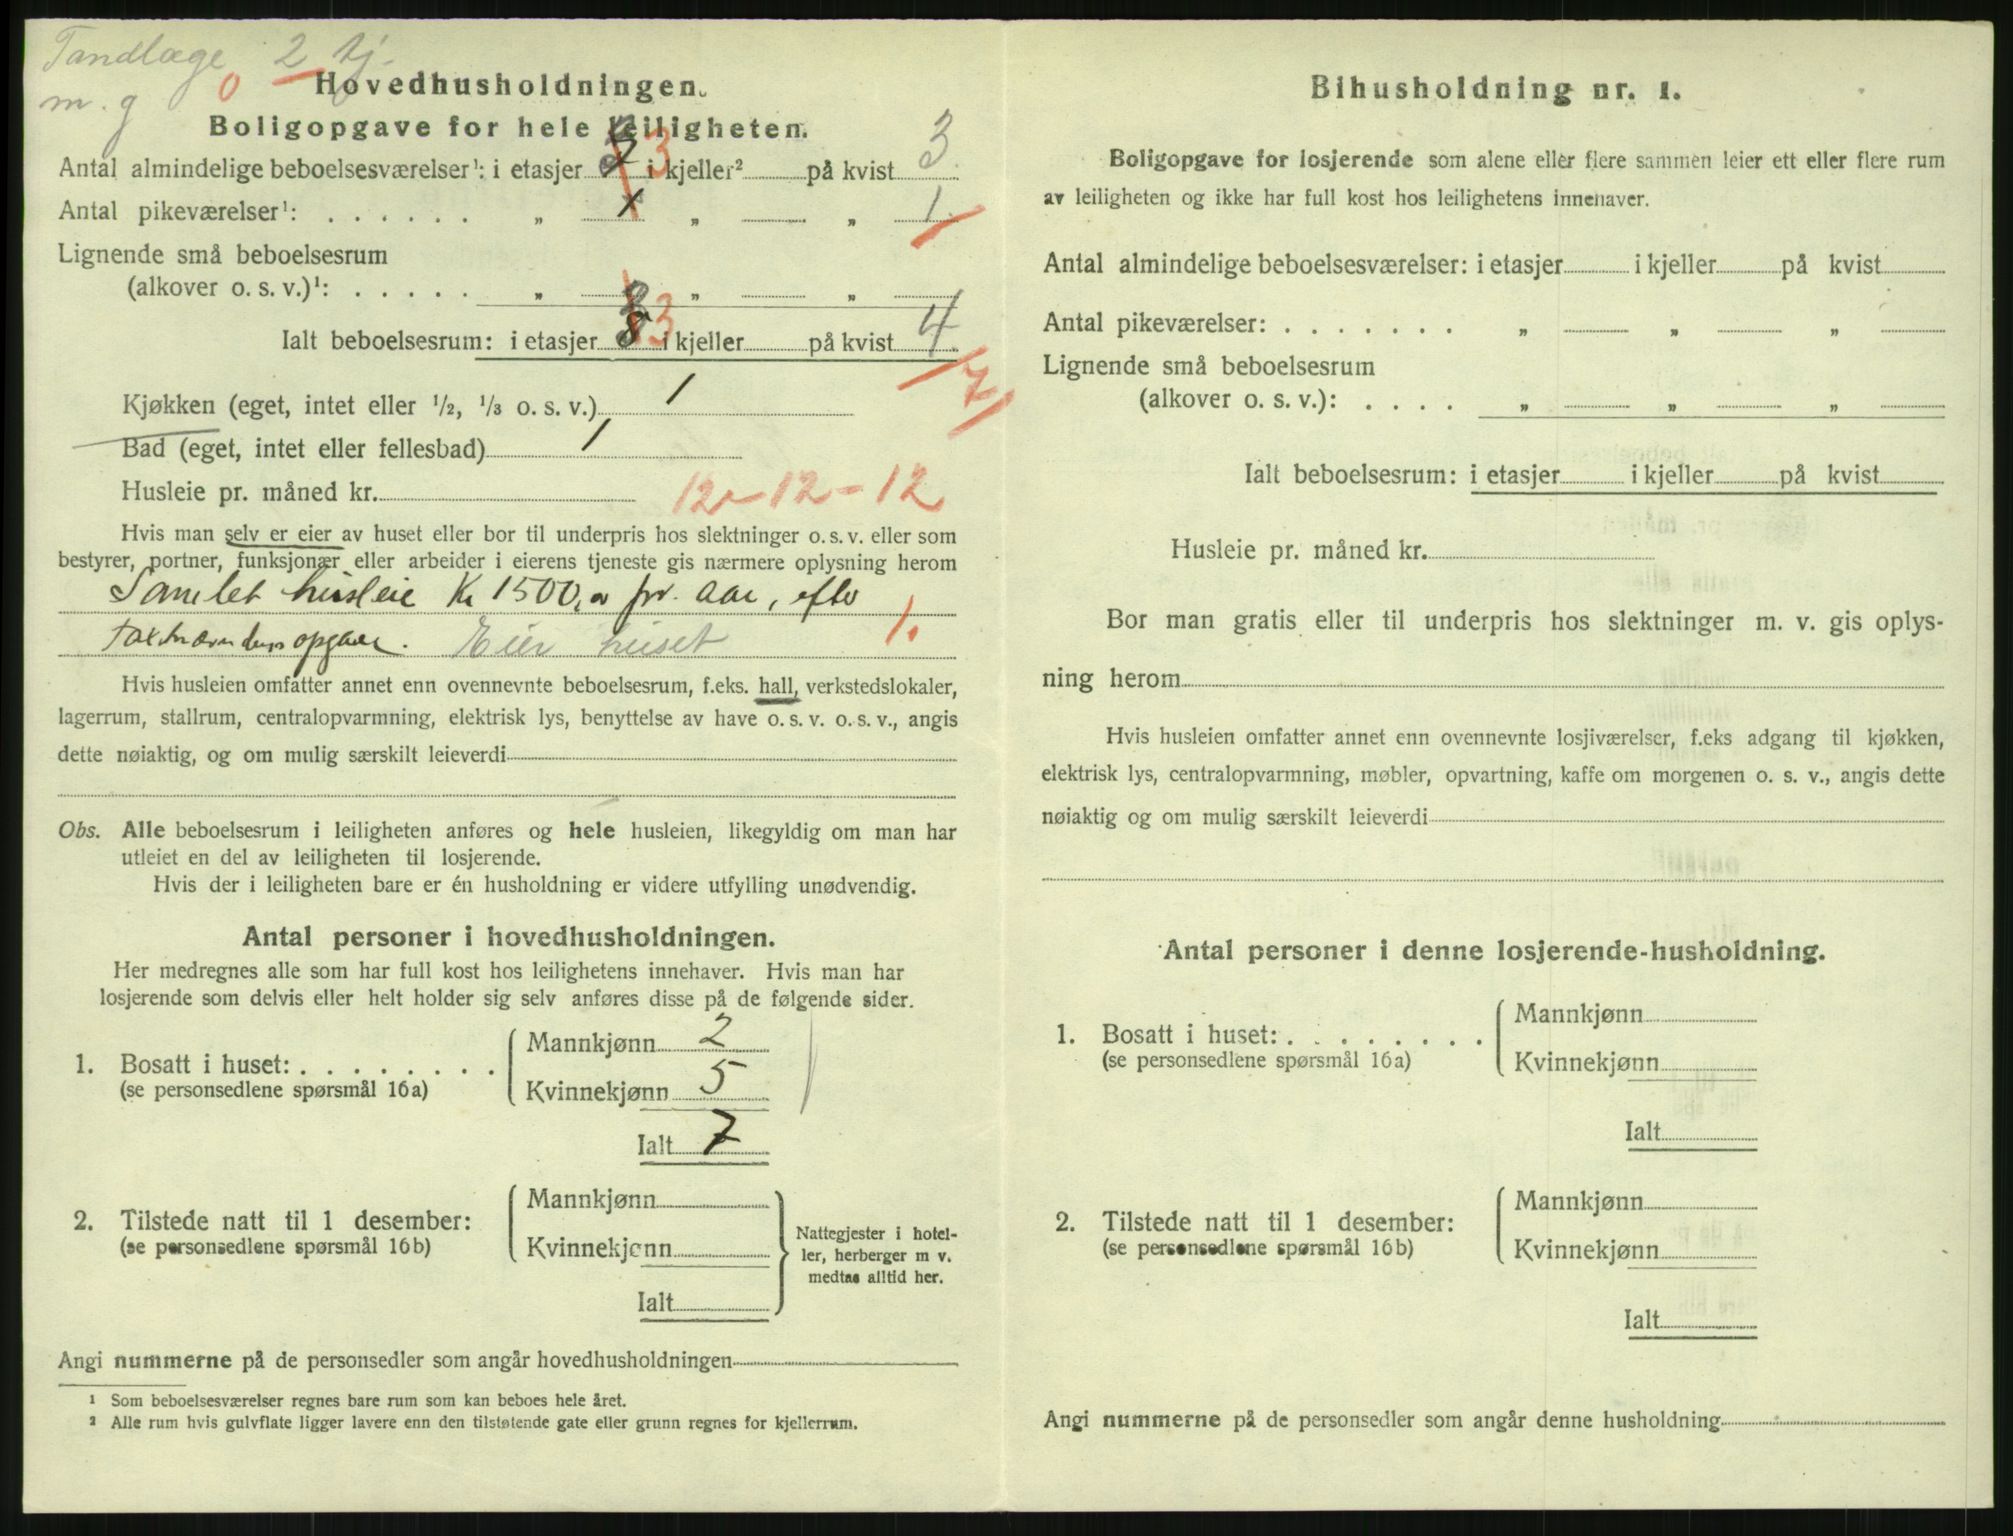 Tandlæge 2 tj.
m. g 0
Hovedhusholdningen.
Boligopgave for hele leiligheten.
Antal almindelige beboelsesværelser¹: i etasjer 3 i kjeller² på kvist 3
Antal pikeværelser¹: . . . . . . „ 1 „ „ 1
Lignende små beboelsesrum
(alkover o. s. v.)¹: . . . . . „ „ „
Ialt beboelsesrum: i etasjer 8 3 i kjeller på kvist 4
7
Kjøkken (eget, intet eller 1/2, 1/3 o. s. v.) 1
Bad (eget, intet eller fellesbad) 1
Husleie pr. måned kr. 12 - 12 - 12
Hvis man selv er eier av huset eller bor til underpris hos slektninger o. s. v. eller som
bestyrer, portner, funksjonær eller arbeider i eierens tjeneste gis nærmere oplysning herom
Samlet husleie Kr 1500,- pr. aar, efter
opgave. Eier huset 1.
Hvis husleien omfatter annet enn ovennevnte beboelsesrum, f.eks. hall, verkstedslokaler,
lagerrum, stallrum, centralopvarmning, elektrisk lys, benyttelse av have o. s. v. o. s. v., angis
dette nøiaktig, og om mulig særskilt leieverdi
Obs. Alle beboelsesrum i leiligheten anføres og hele husleien, likegyldig om man har
utleiet en del av leiligheten til losjerende.
Hvis der i leiligheten bare er én husholdning er videre utfylling unødvendig.
Antal personer i hovedhusholdningen.
Her medregnes alle som har full kost hos leilighetens innehaver. Hvis man har
losjerende som delvis eller helt holder sig selv anføres disse på de følgende sider.
1. Bosatt i huset: . . . . . . . .
(se personsedlene spørsmål 16a)
Mannkjønn 2
Kvinnekjønn 5
Ialt 7
2. Tilstede natt til 1 desember:
(se personsedlene spørsmål 16b)
Mannkjønn
Kvinnekjønn
Ialt
Nattegjester i hotel-
ler, herberger m v.
medtas alltid her.
Angi nummerne på de personsedler som angår hovedhusholdningen
¹ Som beboelsesværelser regnes bare rum som kan beboes hele året.
² Alle rum hvis gulvflate ligger lavere enn den tilstøtende gate eller grunn regnes for kjellerrum.
Bihusholdning nr. 1.
Boligopgave for losjerende som alene eller flere sammen leier ett eller flere rum
av leiligheten og ikke har full kost hos leilighetens innehaver.
Antal almindelige beboelsesværelser: i etasjer i kjeller på kvist
Antal pikeværelser: . . . . . . . „ „ „
Lignende små beboelsesrum
(alkover o. s. v.): . . . . „ „ „
Ialt beboelsesrum: i etasjer i kjeller på kvist
Husleie pr. måned kr.
Bor man gratis eller til underpris hos slektninger m. v. gis oplys-
ning herom
Hvis husleien omfatter annet enn ovennevnte losjiværelser, f.eks adgang til kjøkken,
elektrisk lys, centralopvarmning, møbler, opvartning, kaffe om morgenen o. s. v., angis dette
nøiaktig og om mulig særskilt leieverdi
Antal personer i denne losjerende-husholdning.
1. Bosatt i huset: . . . . . . . .
(se personsedlene spørsmål 16a)
Mannkjønn
Kvinnekjønn
Ialt
2. Tilstede natt til 1 desember:
(se personsedlene spørsmål 16b)
Mannkjønn
Kvinnekjønn
Ialt
Angi nummerne på de personsedler som angår denne husholdning